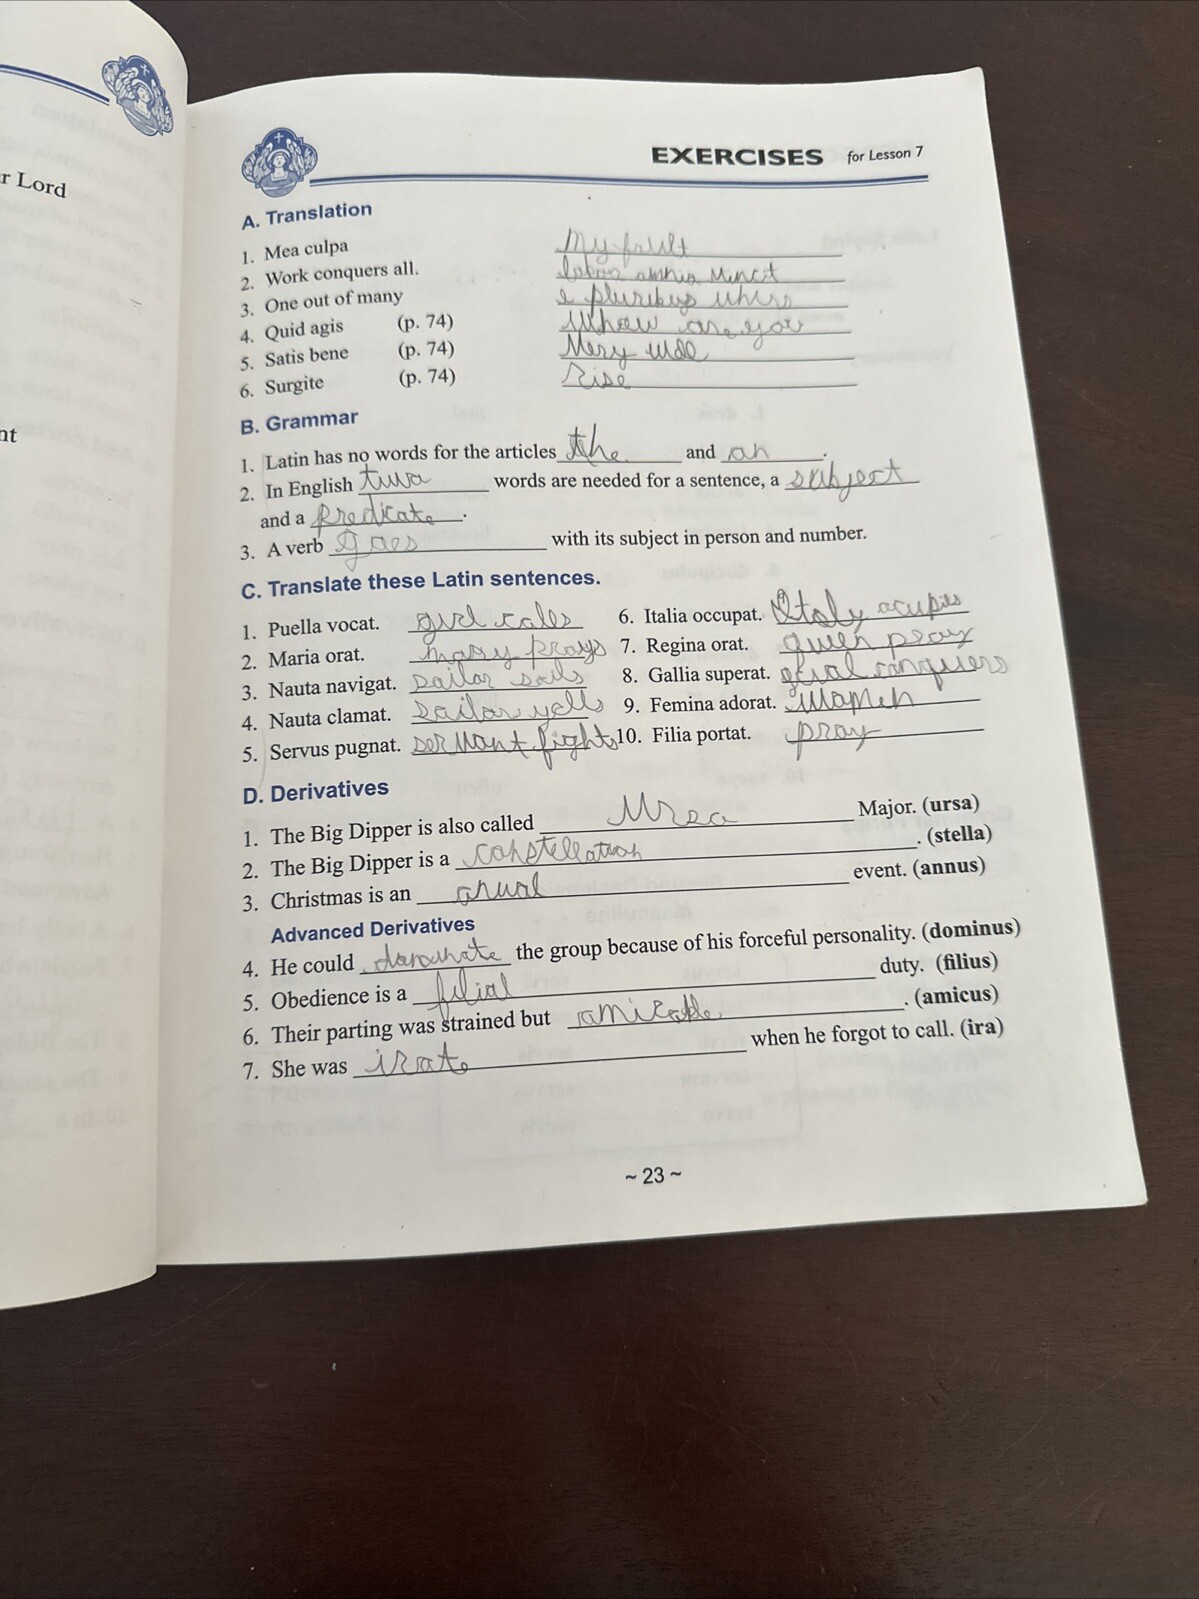 r Lord
nt
EXERCISES for Lesson 7
A. Translation
1. Mea culpa My fault
2. Work conquers all. labor omnia vincit
3. One out of many e pluribus unum
4. Quid agis (p. 74) How are you
5. Satis bene (p. 74) Very well
6. Surgite (p. 74) Rise
B. Grammar
1. Latin has no words for the articles the and an.
2. In English two words are needed for a sentence, a subject
and a predicate.
3. A verb goes with its subject in person and number.
C. Translate these Latin sentences.
1. Puella vocat. girl calls 6. Italia occupat. Italy acupies
2. Maria orat. mary prays 7. Regina orat. queen pray
3. Nauta navigat. sailor sails 8. Gallia superat. conquers
4. Nauta clamat. sailor yells 9. Femina adorat. Women
5. Servus pugnat. servant fights 10. Filia portat. pray
D. Derivatives
1. The Big Dipper is also called Ursa Major. (ursa)
2. The Big Dipper is a constellation. (stella)
3. Christmas is an anual event. (annus)
Advanced Derivatives
4. He could the group because of his forceful personality. (dominus)
5. Obedience is a filial duty. (filius)
6. Their parting was strained but amicable. (amicus)
7. She was irate when he forgot to call. (ira)
~ 23 ~